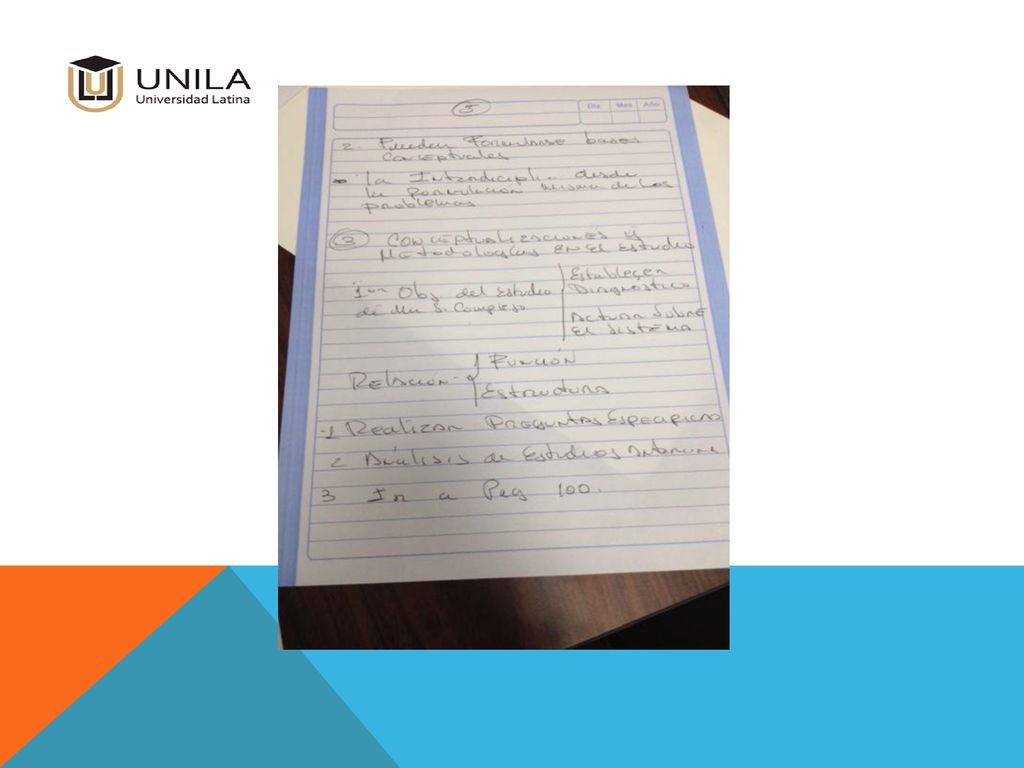 UNILA
Universidad Latina
5
Día Mes Año
2. Pueden Formularse bases
conceptuales
- la Interdicipli. desde
la formulación misma de los
problemas
3 Conceptualizaciones y
Metodologías en el estudio
1er Obj del estudio
de un S. Complejo
Establecer
Diagnóstico
Actuar sobre
el sistema
Relación
Función
Estructura
1 Realizar Preguntas Especificas
2 Análisis de Estudios
3 Ir a Pag 100.